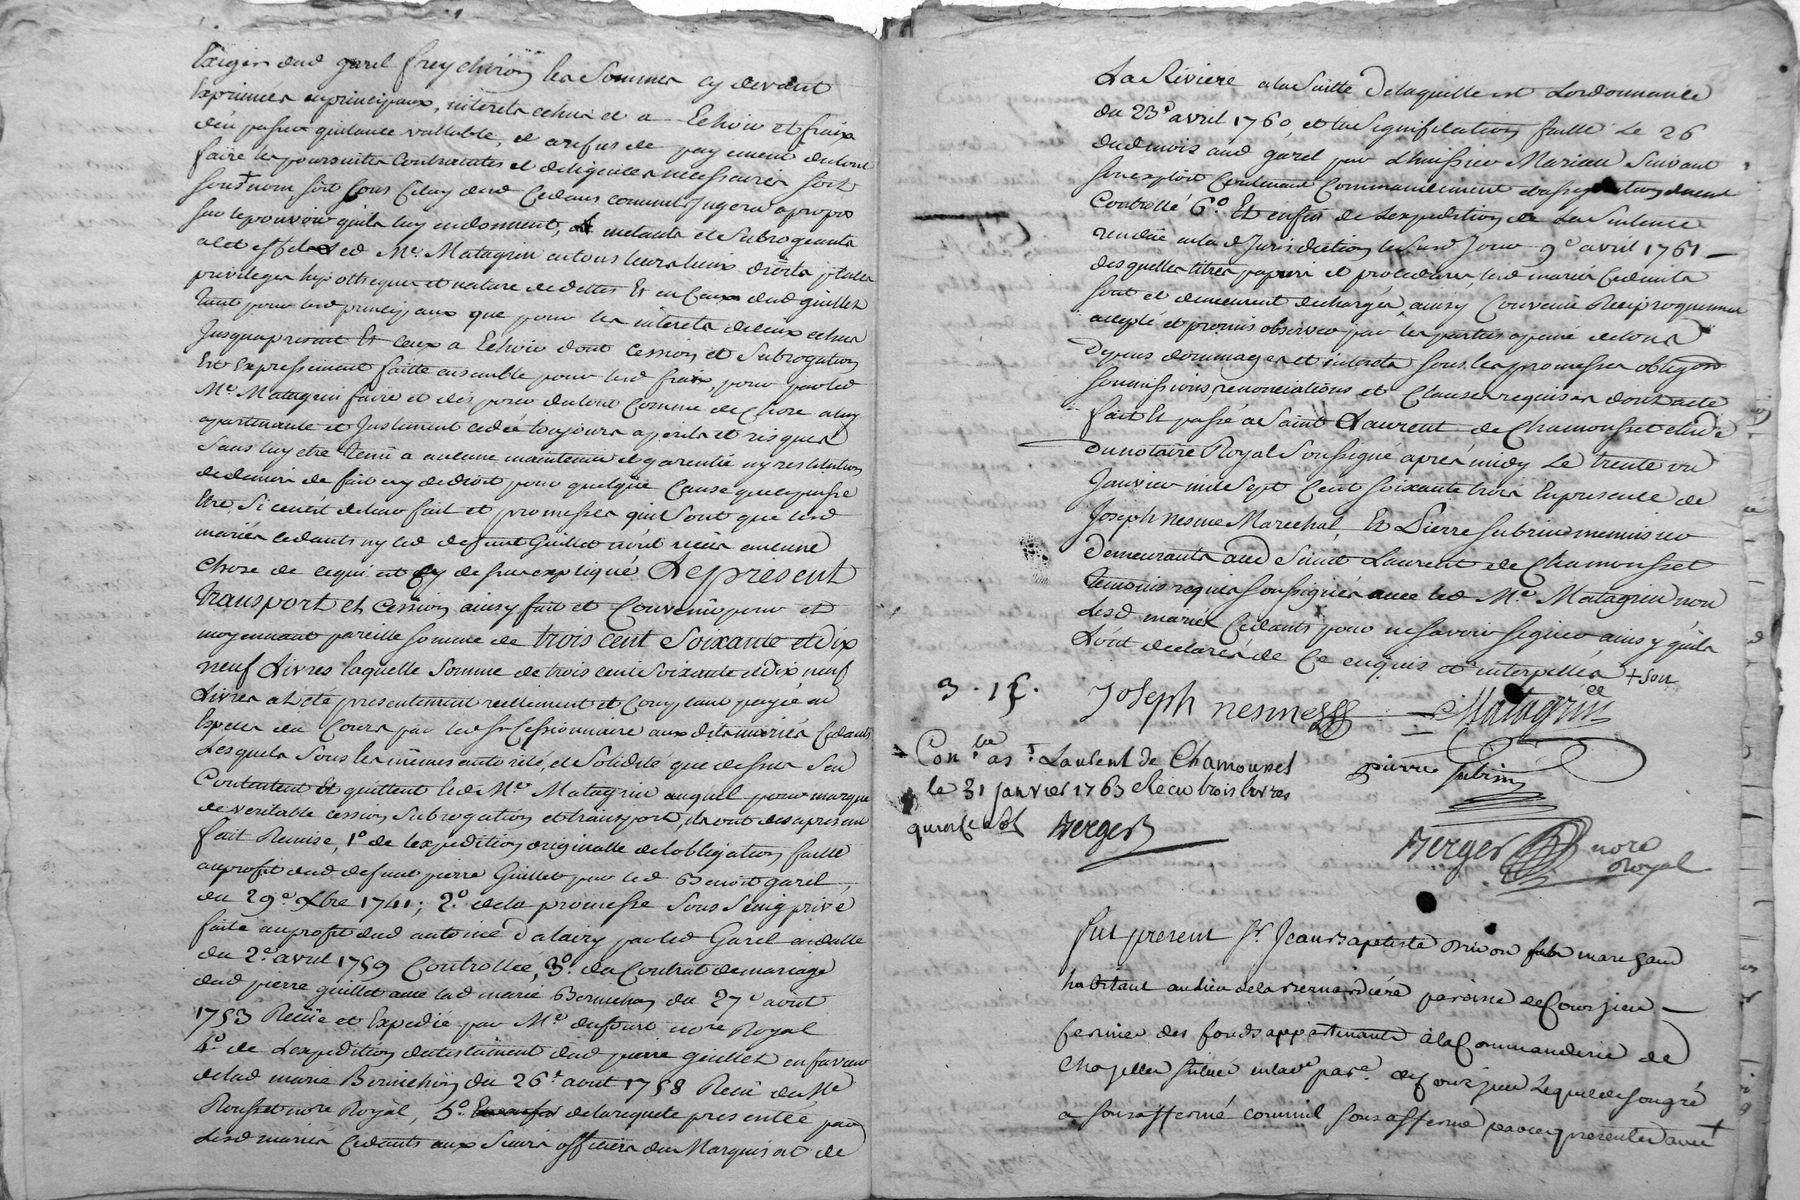 Exiger dud garel freychiron les Sommes cy devant
Exprimées en principaux, interets echus et a Echoir et fraix
d'en passer quitance vallable, et a refus de payement du tout
faire les poursuites Contraintes et deligences necessaires soit
sous nom soit sous Celuy desd Cedants comme Jugera apropos
sur le pouvoir quils luy endonnent, mettants et Subrogeants
a cet effet led Me Matagrin en tous leurs lieux droits
privileges hypotteques et nature de dettes Et en Ceux dud guillet
tant pour les principaux que pour les interets diceux echus
Jusqua present Et ceux a Echoir dont Cession et Subrogation
Est Expressement faitte ensemble pour lesd fraix, pour par led
Me Matagrin faire et dis poser du tout Comme de Chose a luy
apartenante et Justement cedée toujours a perils et risques
Sans luy etre tenu a aucune maintenue et garentie ny restitution
de deniers de fait ny de droit pour quelque Cause que ce puisse
Etre Si cenest deleur fait et promesses qui Sont que lesd
mariés cedants ny led defunt Guillet n'ont reçus aucune
Chose de ce qui est cy dessus expliqué Le present
transport et Cession ainsy fait et Convenû pour et
moyennant pareille somme de trois cent Soixante et dix
neuf Livres laquelle Somme de trois cent soixante et dix neuf
Livres a Eté presentement reellement et Comptant payée en
Especes du Cours par led Sr Cessionnaire aux dits mariés Cedants
Lesquels Sous les mêmes autorité, et Solidité que dessus Sen
Contentent Et quittent led Me Matagrin auquel pour marque
de veritable cession Subrogation et transport, ils ont des apresent
fait Remise, 1o de l'expedition originalle de lobligation faitte
au profit dud defunt pierre Guillet par led Benoit garel
du 29e 9bre 1741; 2o de la promesse Sous Seing privé
faite au profit dud antoine Dalairy par led Garel en datte
du 2e avril 1759 Controllée, 3o du Contrat de mariage
dud pierre guillet avec lad marie Bonnichon du 27e aout
1753 Reçûe et Expedié par Me dufour nore Royal
4o de Lexpedition du testament dud pierre guillet en faveur
de lad marie Bonnichon du 26e aout 1758 Reçû du Me
Rousset nore Royal, 5o de la requete presentée par
Lesd mariés Cedants aux Sieurs officiers du Marquisat de
La Riviere a la Suitte de laquelle est Lordonnance
du 23e avril 1760, et la Signification faitte Le 26
dud mois aud garel par Lhuissier Mariau Suivant
son exploit Contenant Commandement et assignation dument
Controllé 6o Et enfin de Lexpedition de La Sentence
rendüe en lad Jurisdiction le Susd Jour 9e avril 1761
desquelles titres papiers et procedures, lesd mariés Cedants
sont et demeurent dechargés, ainsy Convenû Reciproquement
accepté et promis observer par les parties a peine de tous
Depens dommages et interets sous les promesses obligons
soumissions, renonciations et Clauses requises dont acte
fait Et passé a Saint Laurent de Chamousset etude
du notaire Royal Soussigné après midy Le trente un
Janvier mil Sept Cent Soixante trois En presence de
Joseph nesme Marechal, Et Pierre Subrin menuisier
demeurants aud Saint Laurent de Chamousset
temoins requis soussignés avec led Me Matagrin non
Lesd mariés Cedants pour ne savoir signer ainsy quils
Lont declarés de Ce enquis et interpellés + son
3. 1 s.
Joseph nesme Matagrin
Conlle a St Laurent de Chamousset
le 31 janvier 1763 Recu trois livres
Berger
pierre subrin
Berger nore
Royal
fut present Sr Jean Baptiste marchand
habitant au lieu de la Bernardiére paroisse de Coursieu
fermier des fonds appartenants à la Commanderie de
Chazelles situés en lade parse de Coursieu Lequel de son gré
a sous affermé comme il sous afferme par ces presentes avec +